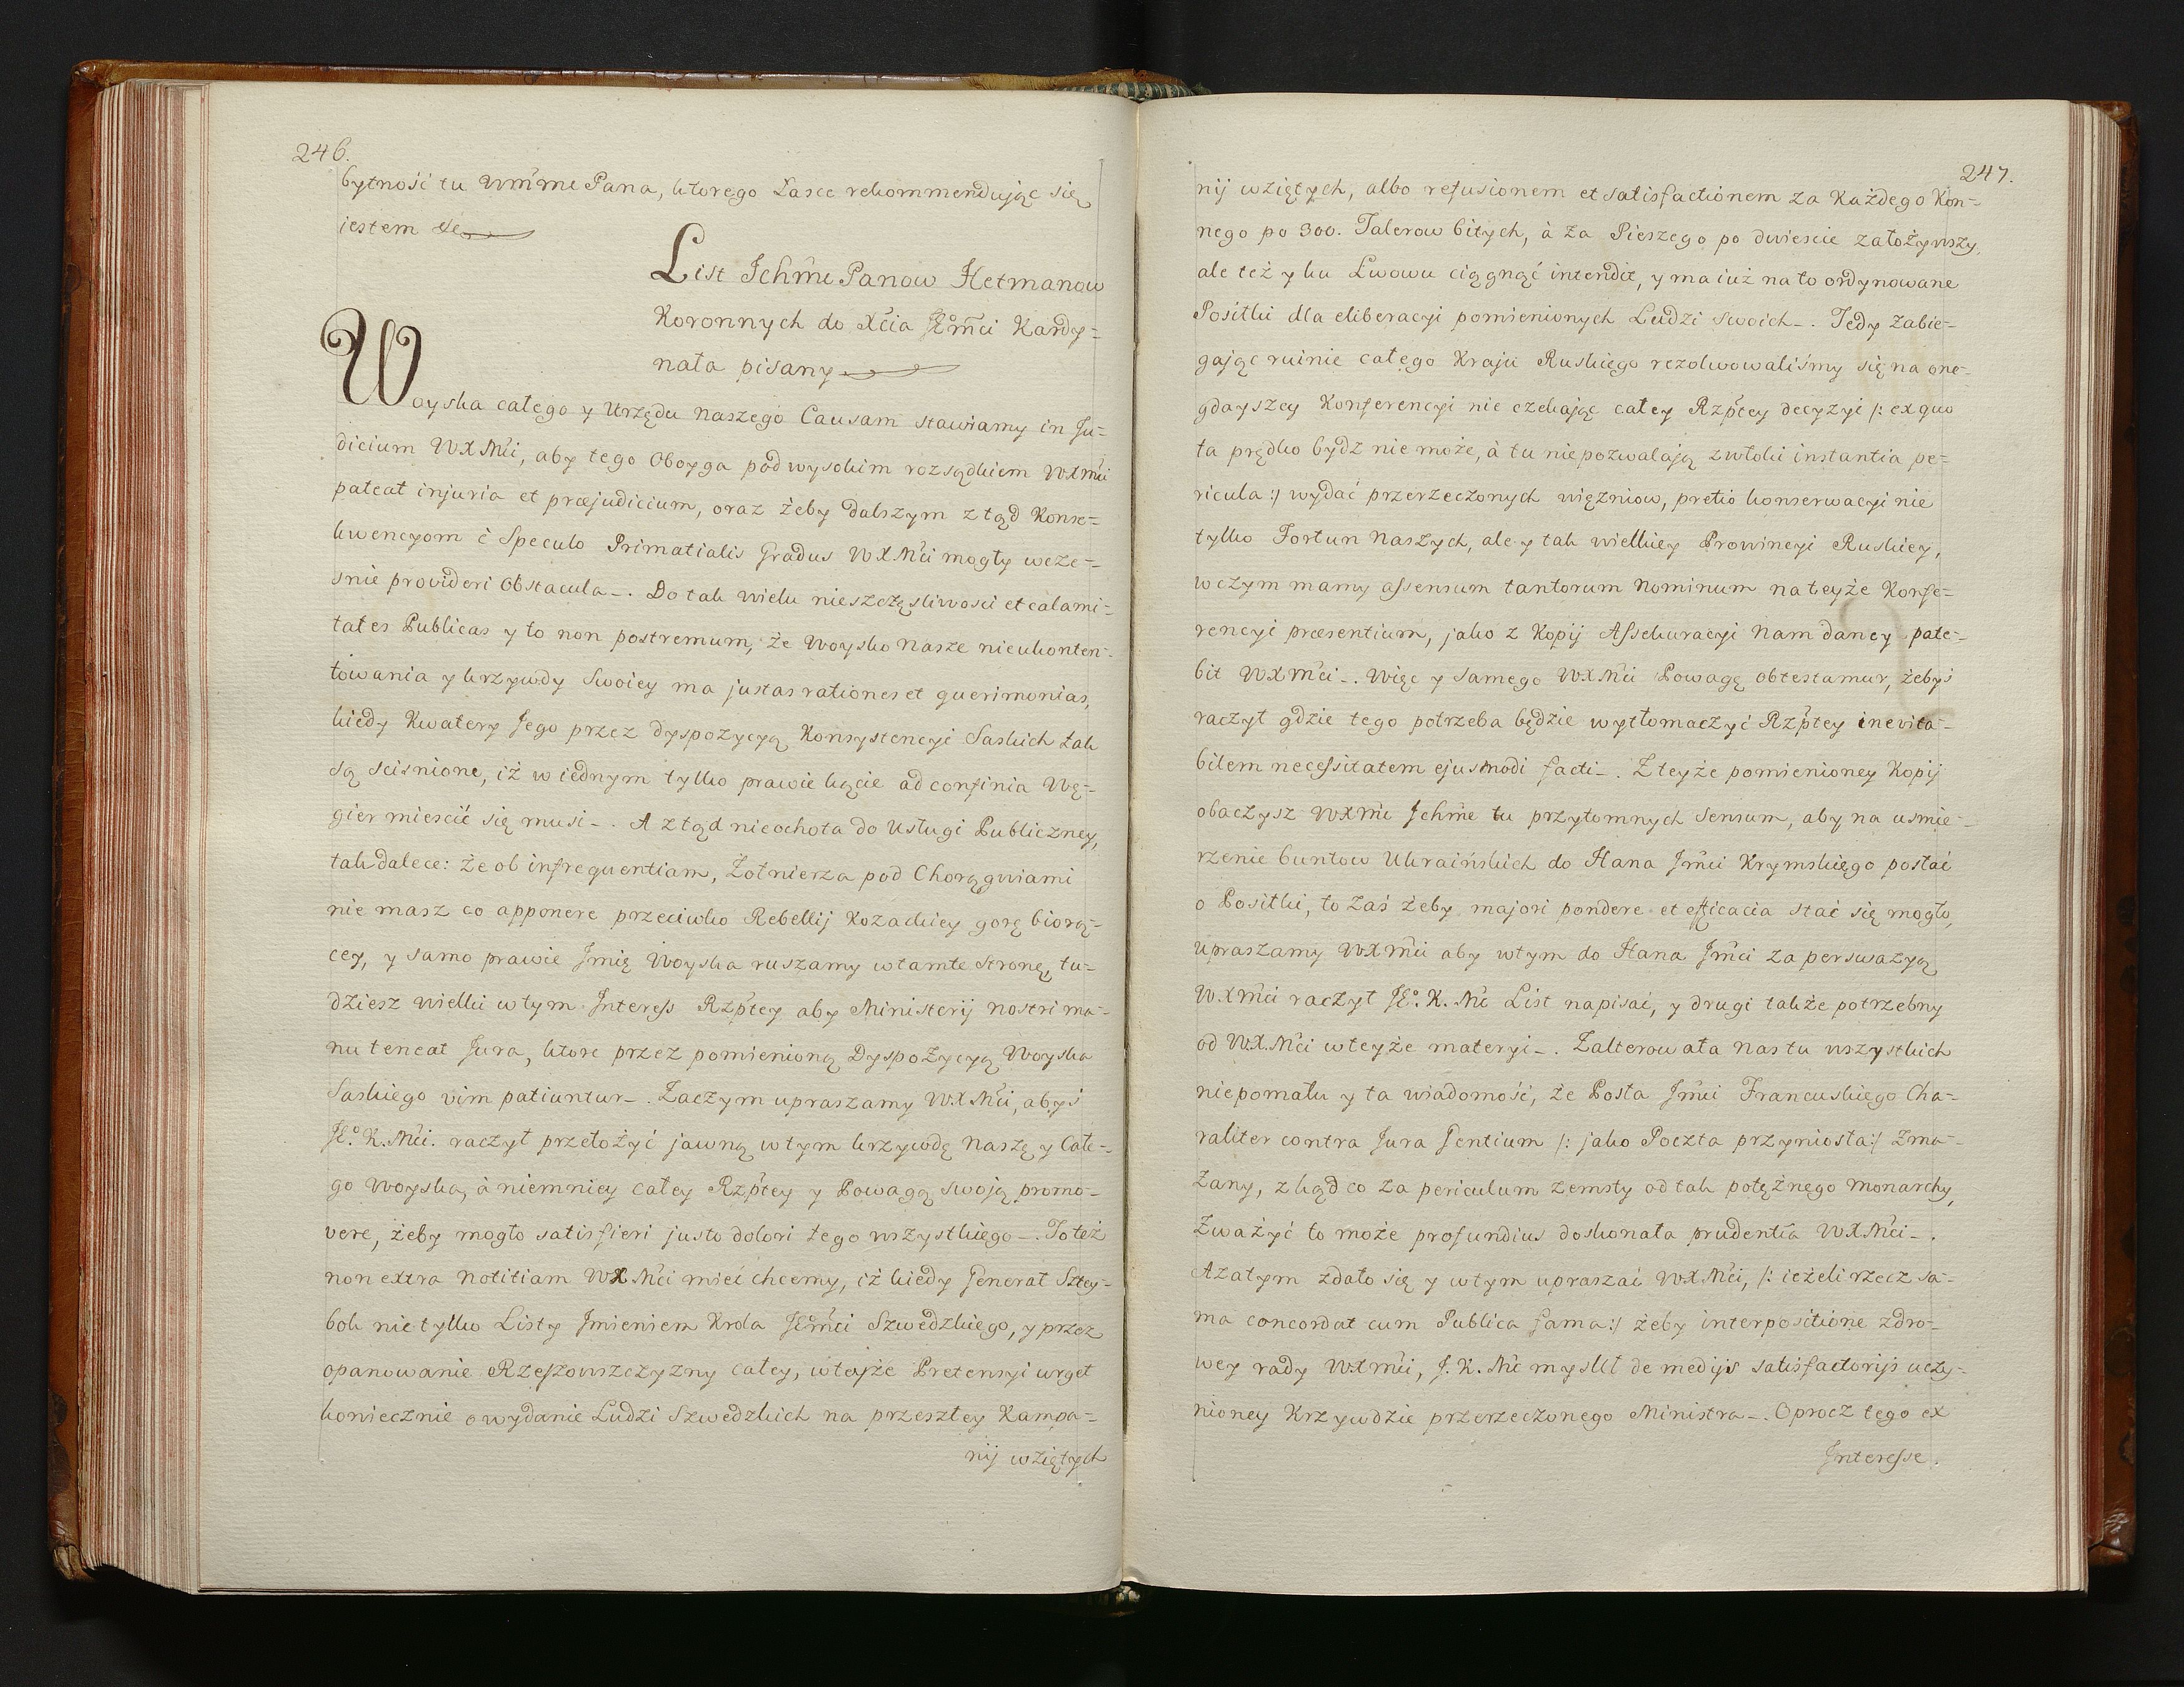 246.
bytność tu Wm̃me Pana, ktorego Łasce rekommendując się
jestem &c
List Jchm̃c Panow Hetmanow
Koronnych do Xcia JEm̃ci Kardy=
nała pisany
Woyska całego y Urzędu naszego Causam stawiamy in Ju=
dicium WXMci, aby tego oboyga pod wysokim rozsądkiem WXMci
pateat injuria et præjudicium, oraz żeby dalszym ztąd Konse=
kwencyom è Speculo Primatialis Gradus WXMci mogły wcze=
snie provideri Obstacula_. Do tak wielu nieszczęsliwosci et calami=
tates Publicas y to non postremum, że Woysko nasze nieukonten=
towania y krzywdy Swoiey ma justas rationes et querimonias,
kiedy Kwatery Jego przez dyspozycyą Konsystencyi Saskich tak
są scisnione, iż w iednym tylko prawie kącie ad confinia Wę=
gier miescić się musi_. A ztąd nieochota do Usługi Publiczney,
tak dalece: że ob infrequentiam, Zołnierza pod Chorągwiami
nie masz co apponere przeciwko Rebellij Kozackiey gorę biorą=
cey, y samo prawie Jmię Woyska ruszamy w tamte stronę, tu=
dziesz wielki w tym Interess Rzptey aby Ministerij nostri ma=
nu teneat Jura, ktore przez pomienioną Dyspozycyą Woyska
Saskiego vim patiuntur_. Zaczym upraszamy WXMci, abyś
JE°. K. Mci. raczył przełożyć jawną w tym krzywdę naszę y Całe=
go Woyska, à niemniey całey Rzptey y Powagą swoją promo=
vere, żeby mogło satisfieri justo dolori tego wszystkiego_. To też
non extra notitiam WXMci mieć chcemy, iż kiedy Generał Sztey=
bok nie tylko Listy Jmieniem Krola JEm̃ci Szwedzkiego, y przez
opanowanie Rzeszowszczyzny całey, w teyże Pretensyi urget
koniecznie o wydanie Ludzi Szwedzkich na przeszłey Kampa=
nij wziętych
247.
nij wziętych, albo refusionem et satisfactionem za Każdego Kon=
nego po 300. Talerow bitych, à za Pieszego po dwiescie założywszy,
ale też y ku Lwowu ciągnąć intendit, y ma iuż na to ordynowane
Posiłki dla eliberacyi pomienionych Ludzi swoich_. Tedy zabie=
gając ruinie całego Kraju Ruskiego rezolwowaliśmy się na one=
gdayszey Konferencyi nie czekając całey Rzptey decyzyi /: ex quo
ta prędko bydz nie może, à tu nie pozwalają zwłoki instantia pe=
ricula :/ wydać przerzeczonych więzniow, pretio konserwacyi nie
tylko Fortun naszych, ale y tak wielkiey Prowincyi Ruskiey,
w czym mamy assensum tantorum Nominum na teyże Konfe=
rencyi præsentium, jako z Kopij Assekuracyi nam daney pate=
bit WXMci_. Więc y samego WXMci Powagę obtestamur, żebyś
raczył gdzie tego potrzeba będzie wytłomaczyć Rzptey inevita=
bilem necessitatem ejusmodi facti_. Z teyże pomienioney Kopij
obaczysz WXMć Jchm̃c tu przytomnych sensum, aby na usmie=
rzenie buntow Ukraińskich do Hana Jm̃ci Krymskiego posłać
o Posiłki, to zaś żeby majori pondere et efficacia stać się mogło,
upraszamy WXMci aby w tym do Hana Jm̃ci za perswazyą
WXMci raczył JE°. K. Mć List napisać, y drugi także potrzebny
od WXMci w teyże materyi_. Zalterowała nas tu wszystkich
niepomału y ta wiadomość, że Posła Jm̃ci Francuskiego Cha=
rakter contra Jura Gentium /: jako Poczta przyniosła :/ zma=
zany, zkąd co za periculum zemsty od tak potężnego monarchy,
zważyć to może profundius doskonała prudentia WXMci_.
Azatym zdało się y w tym upraszać WXMci, /: ieżeli rzecz sa=
ma concordat cum Publica fama :/ żeby interpositione zdro=
wey rady WXMci, J. K. Mć myslił de medijs satisfactorijs uczy=
nioney Krzywdzie przerzeczonego Ministra_. Oprocz tego ex
Interesse.